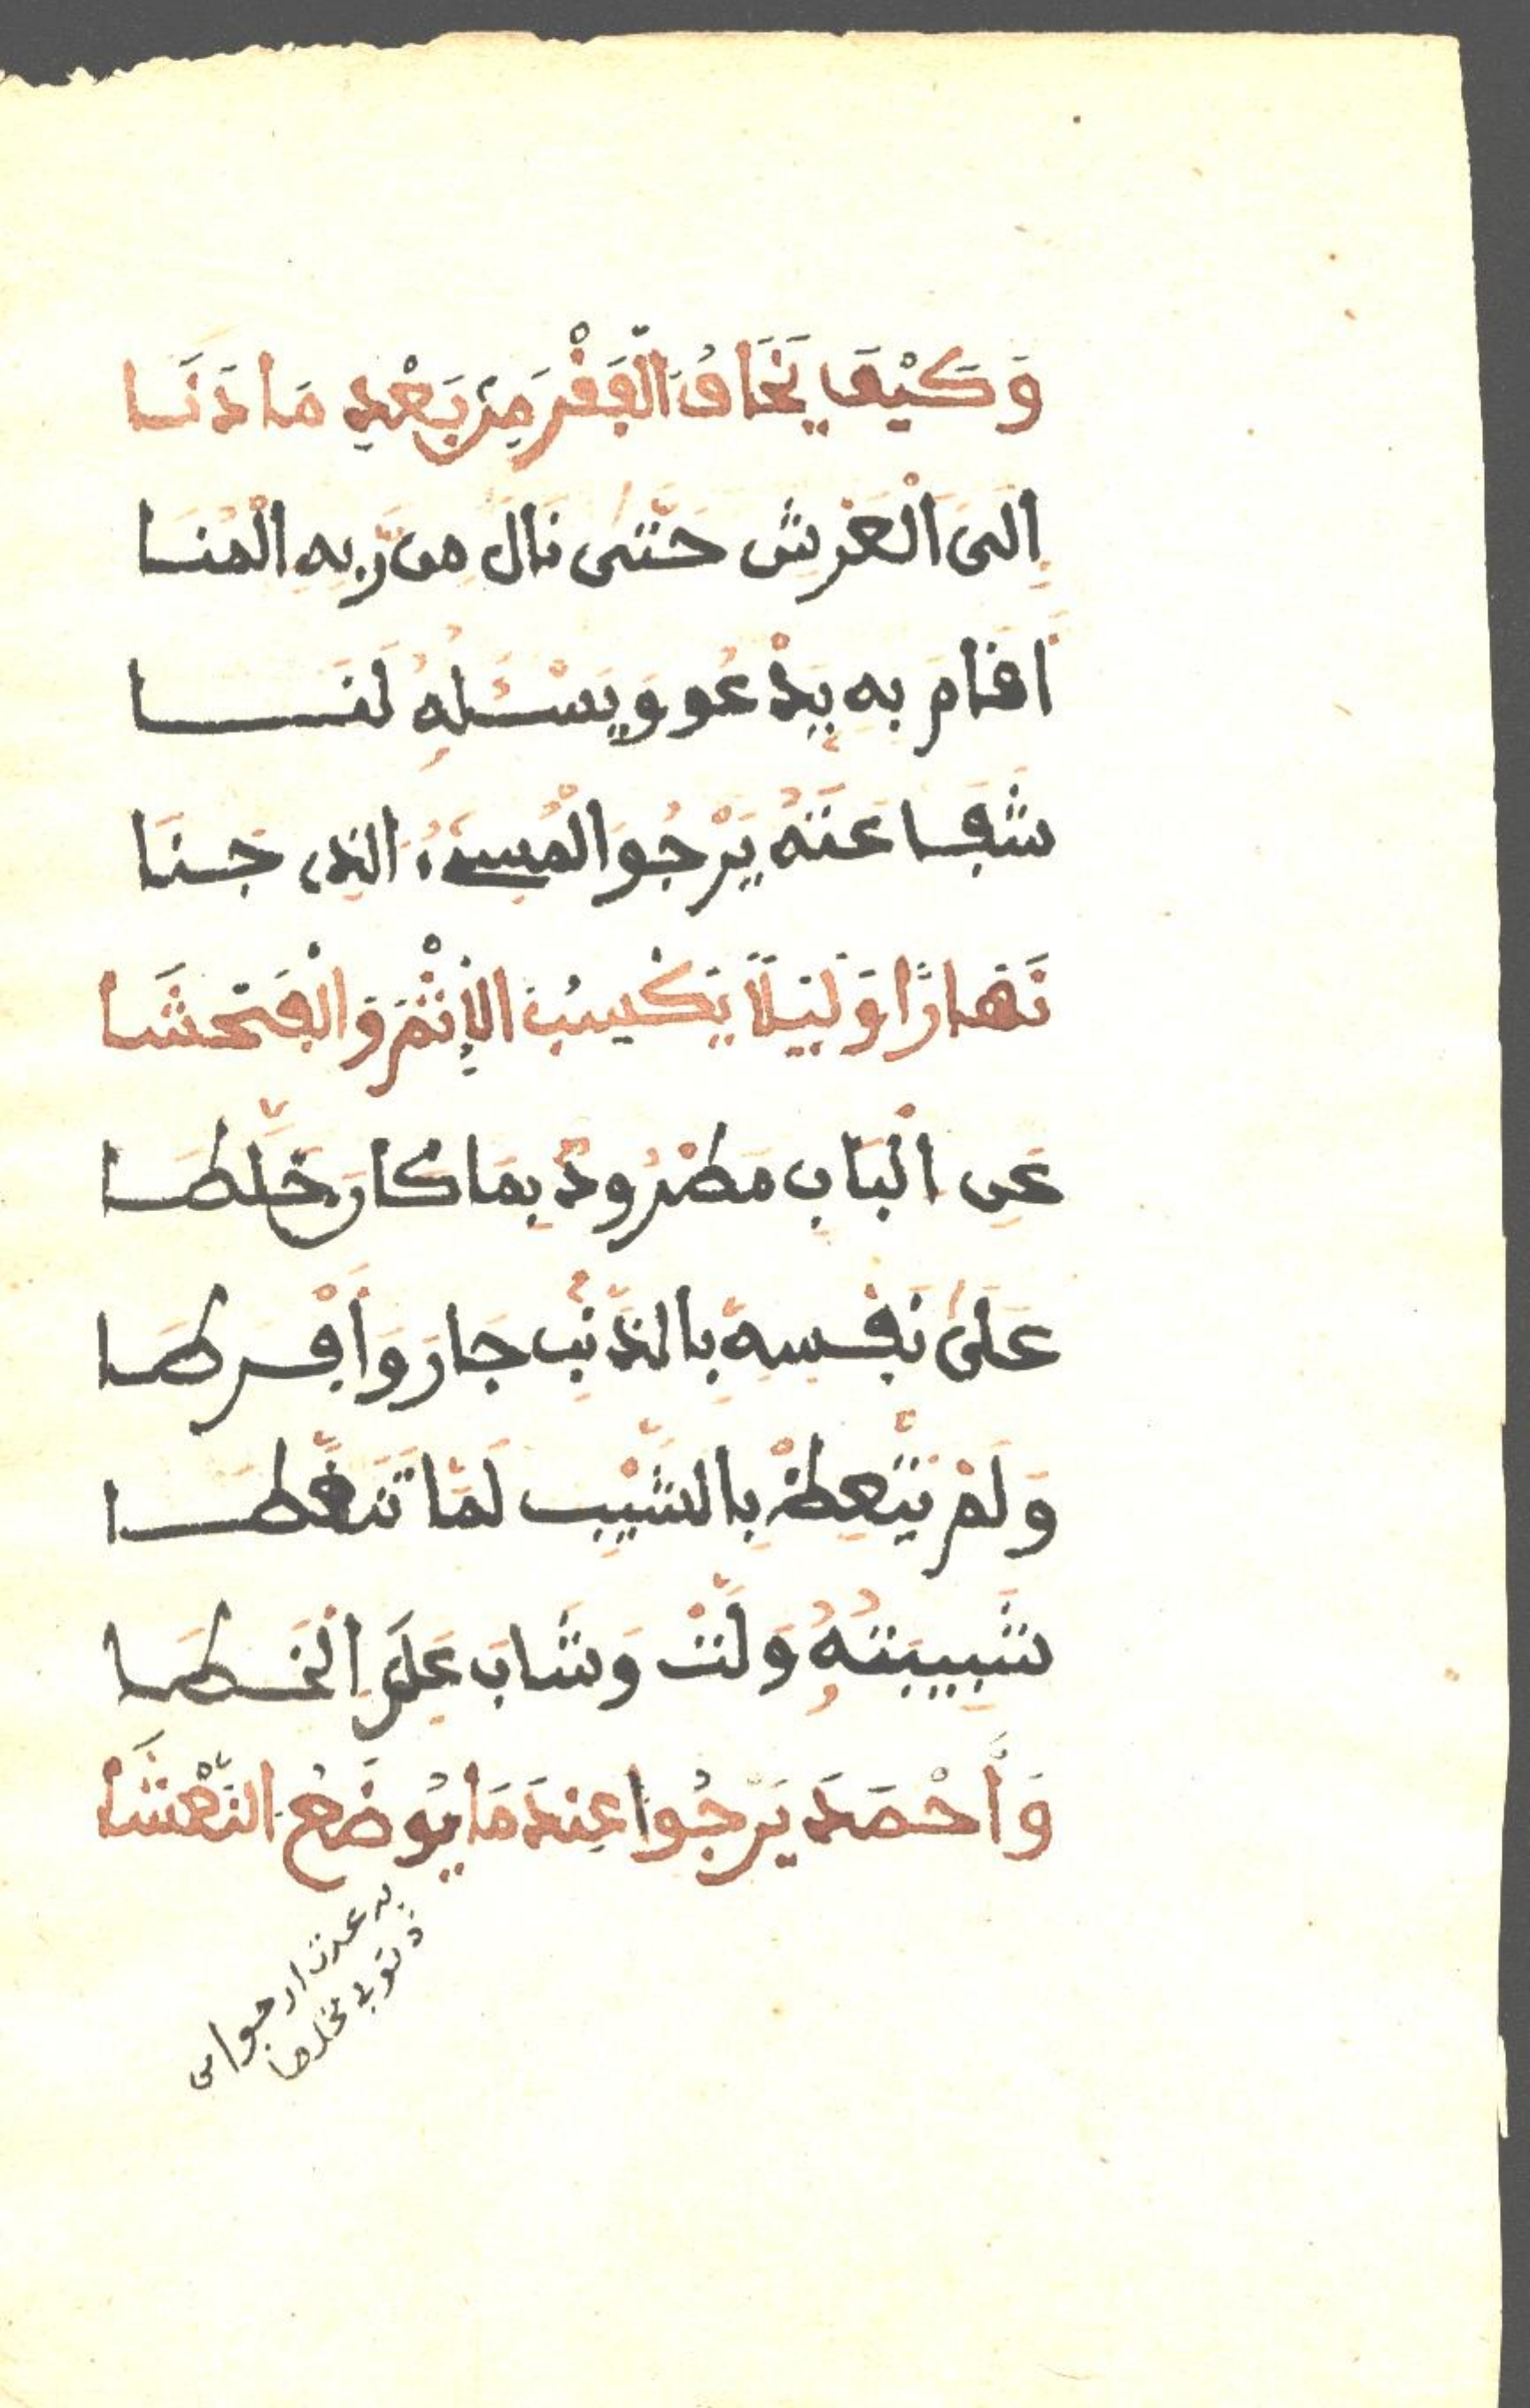 وَكَيْفَ يَخَافُ الْفَقْرَ مِنْ بَعْدِ مَا دَنَا
إِلَى الْعَرْشِ حَتَّى نَالَ مِن رَّبِهِ الْمُنَا
أَقَامَ بِهِ يَدْعُو وَيَسْئَلُهُ لَنَا
شَفَاعَتَهُ يَرْجُو الْمُسِىءُ الذِى جَنَا
نَهَارًا وَلَيْلًا يَكْسِبُ الْإِثْمَ وَالْفَحْشَا
عَنِ الْبَابِ مَطْرُودٌ بِمَا كَانَ خَلَّطَا
عَلَى نَفْسِهِ بِالذَّنْبِ جَارَ وَأَفْرَطَا
وَلَمْ يَتَّعِظْ بِالشَّيْبِ لَمَّا تَنَقَّطَا
شَبِيبَتُهُ وَلَّتْ وَشَابَ عَلَى الْخَطَا
وَأَحْمَدَ يَرْجُوا عِنْدَ مَا يُوضَعُ النَّعْشَا